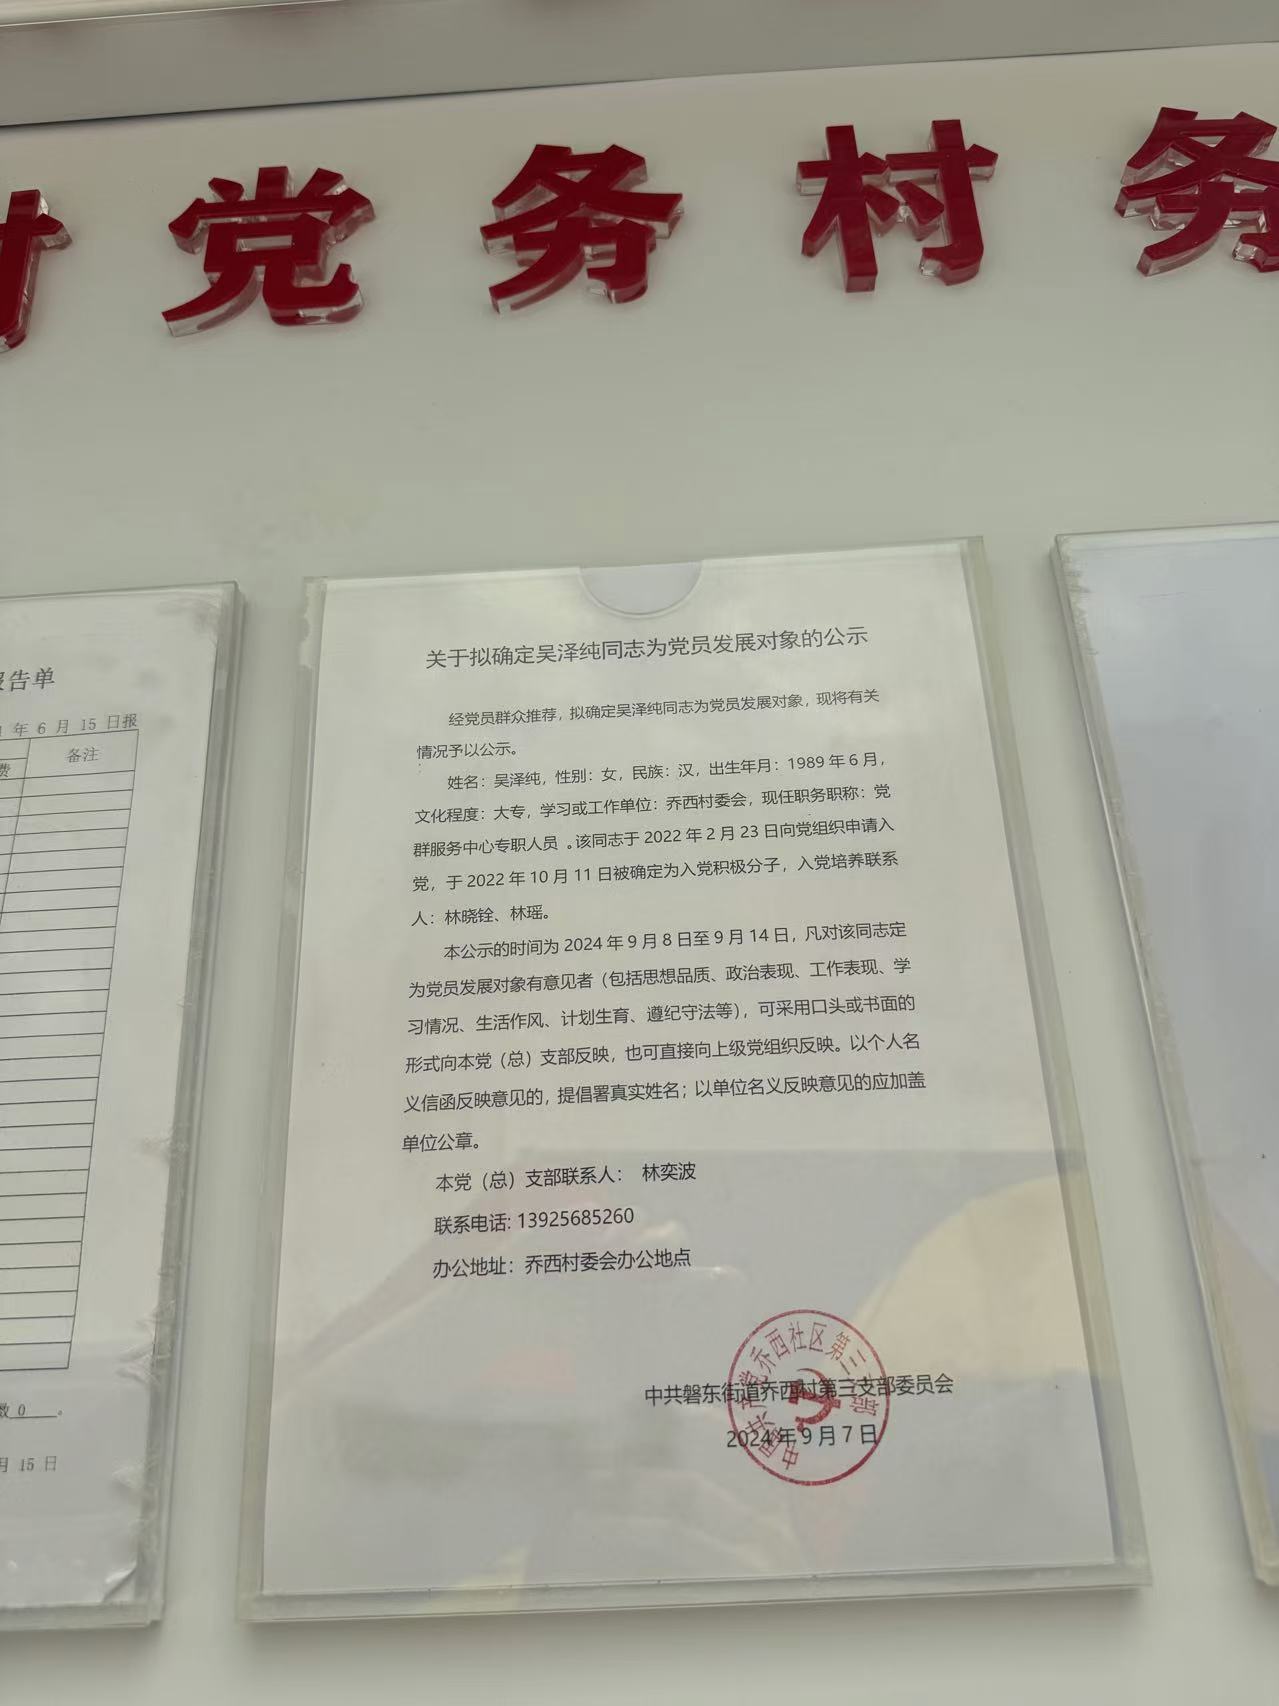 党务村务
报告单
年 6 月 15 日报
费
备注
数 0 。
月 15 日
关于拟确定吴泽纯同志为党员发展对象的公示
经党员群众推荐，拟确定吴泽纯同志为党员发展对象，现将有关
情况予以公示。
姓名：吴泽纯，性别：女，民族：汉，出生年月：1989 年 6 月，
文化程度：大专，学习或工作单位：乔西村委会，现任职务职称：党
群服务中心专职人员 。该同志于 2022 年 2 月 23 日向党组织申请入
党，于 2022 年 10 月 11 日被确定为入党积极分子，入党培养联系
人：林晓铨、林瑶。
本公示的时间为 2024 年 9 月 8 日至 9 月 14 日，凡对该同志定
为党员发展对象有意见者（包括思想品质、政治表现、工作表现、学
习情况、生活作风、计划生育、遵纪守法等），可采用口头或书面的
形式向本党（总）支部反映，也可直接向上级党组织反映。以个人名
义信函反映意见的，提倡署真实姓名；以单位名义反映意见的应加盖
单位公章。
本党（总）支部联系人： 林奕波
联系电话: 13925685260
办公地址：乔西村委会办公地点
中共磐东街道乔西村第三支部委员会
2024 年 9 月 7 日